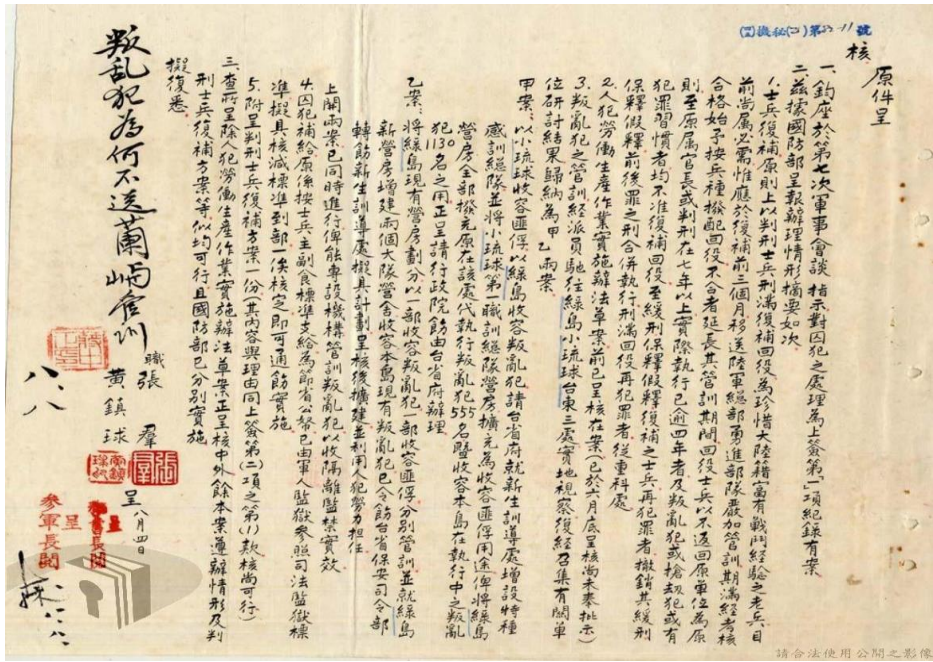 (四)機秘(乙)第53-11號
核
原件呈
一、鈞座於第七次軍事會談指示對囚犯之處理為上簽第「」項紀錄有案
二、茲據國防部呈報辦理情形摘要如次
1.士兵復補原則上以判刑士兵刑滿復補回役為珍惜大陸籍富有戰鬥經驗之老兵目
前尚属必需惟應於復補前三個月移送陸軍總部勇進部隊嚴加管訓期滿經考核
合格始予按兵種撥配回役不合者延長其管訓期間回役士兵以不返回原單位為原
則至原属官長或判刑在七年以上實際執行已逾四年者及叛亂犯或搶刼犯或有
犯罪習慣者均不准復補回役至緩刑保釋假釋復補之士兵再犯罪者撤銷其緩刑
保釋假釋前後罪之刑合併執行刑滿回役再犯罪者從重科處
2.人犯勞働生產作業實施辦法草案前已呈核在案(已於六月底呈核尚未奉批示)
3.叛亂犯之管訓經派員馳往綠島小琉球台東三處實地視察後經召集有關單
位研討結果歸納為甲乙兩案
甲案:以小琉球收容匪俘以綠島收容叛亂犯請台省府就新生訓導處增設特種
感訓總隊並將小琉球第一職訓總隊營房擴充為收容匪俘用途俾將綠島
營房全部撥充原在該處代執行叛亂犯55名暨收容本島在執行中之叛亂
犯1130名之用正呈請行政院飭由台省府辦理
乙案:將綠島現有營房劃分以一部收容叛亂犯一部收容匪俘分別管訓並就綠島
新營房增建兩個大隊營舍收容本島現有叛亂犯已令飭台省保安司令部
轉飭新生訓導處擬具計劃呈核後擴建並利用人犯勞力担任
上開兩案已同時進行俾能專設機構管訓叛亂犯以收隔離監禁實效
4.囚犯補給原係按士兵主副食標準支給為節省公帑已由軍人監獄參照司法監獄標
準擬具核減標準到部俟核定即可通飭實施
5.附呈判刑士兵復補方案一份(其內容與理由同上簽第(二)項之第(1)款核尚可行)
三、查所呈除人犯勞働生產作業實施辦法草案正呈核中外餘本案遵辦情形及判
刑士兵復補方案等似均可行且國防部已分別實施
擬復悉
職張羣
黃鎮球
呈八月四日
叛乱犯為何不送蘭嶼管訓
蔣中正印
八.八
張羣
呈
參軍長閱